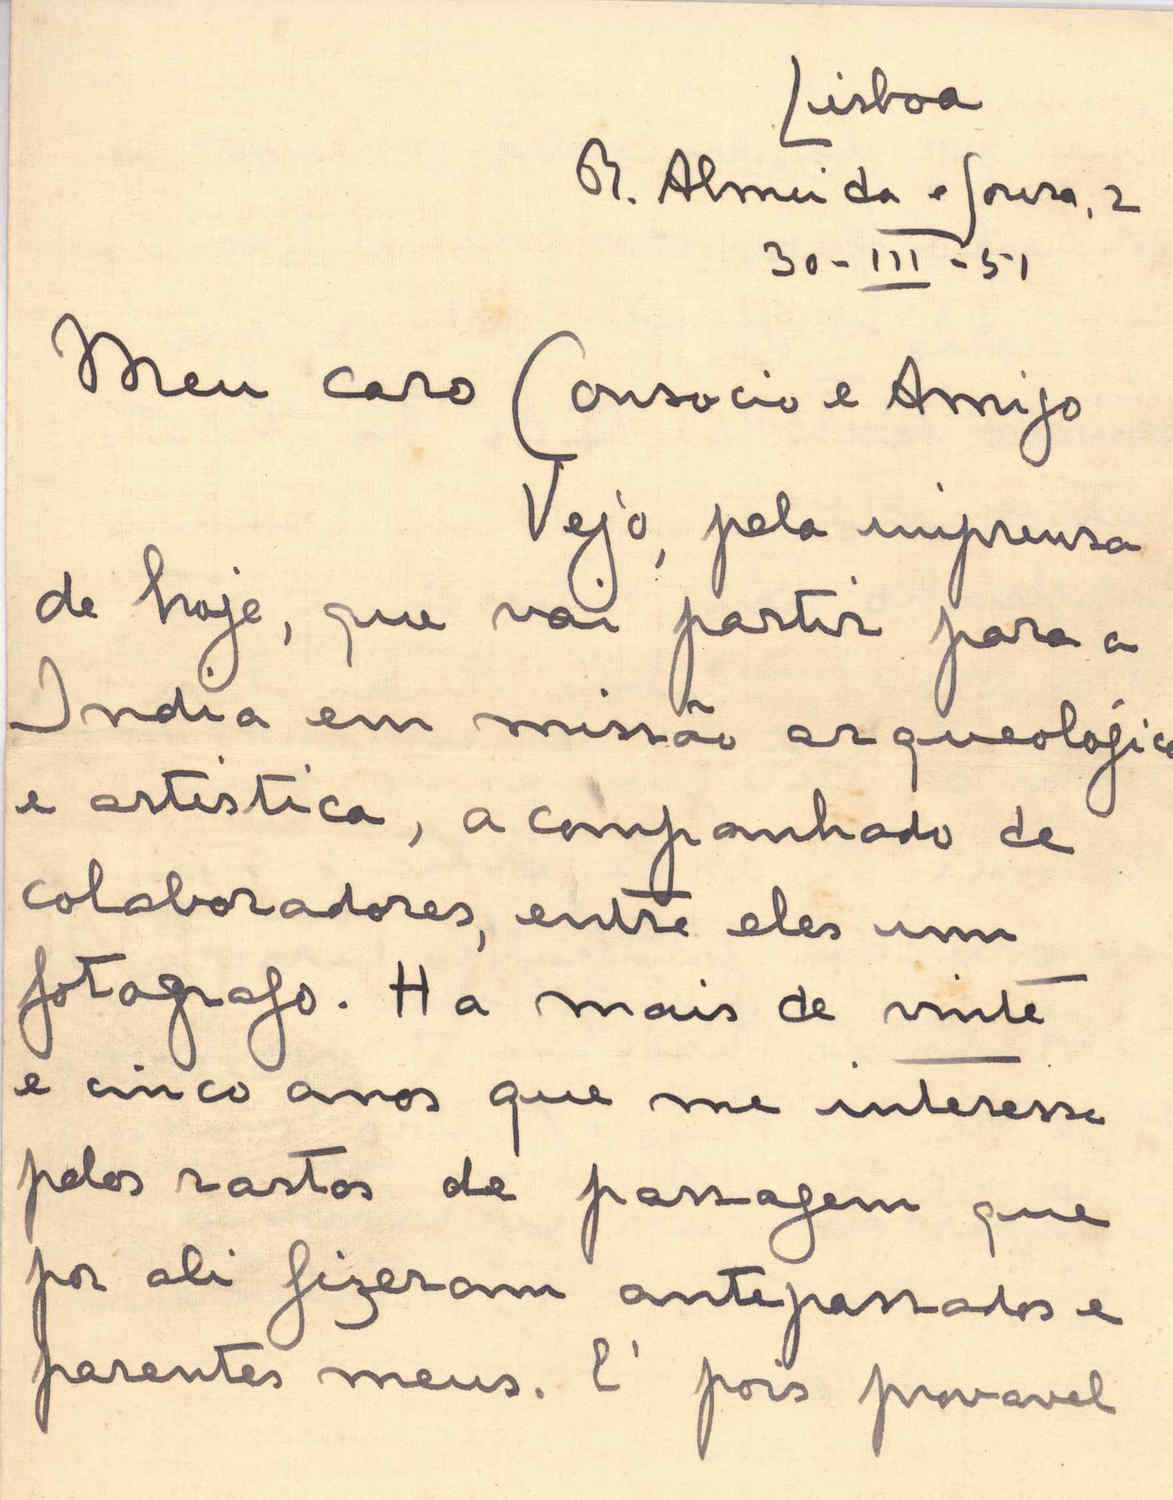 Lisboa
R. Almeida e Sousa, 2
30-III-51
Meu caro Consocio e Amigo
Vejo, pela imprensa
de hoje, que vai partir para a
India em missão arqueológica
e artistica, acompanhado de
colaboradores, entre eles um
fotografo. Ha mais de vinte
e cinco anos que me interesso
pelos rastos de passagem que
por ali fizeram antepassados e
parentes meus. E' pois provavel